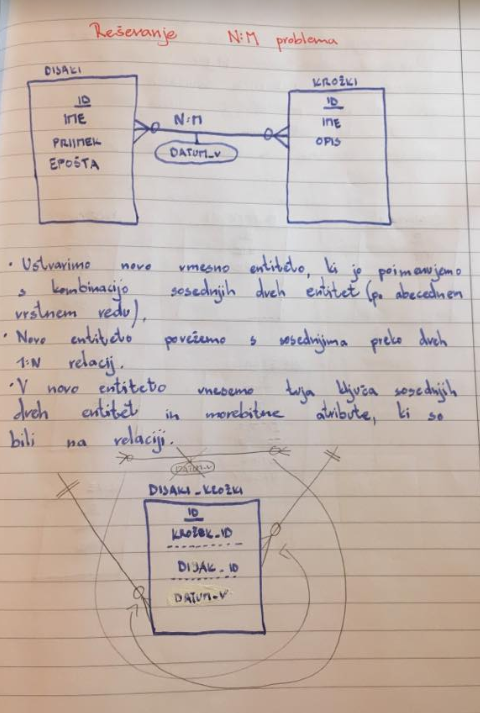 Reševanje N:M problema
DIJAKI
KROŽKI
ID
IME
PRIIMEK
EPOŠTA
N:M
DATUM_V
ID
IME
OPIS
• Ustvarimo novo vmesno entiteto, ki jo poimenujemo
s kombinacijo sosednjih dveh entitet (po abecednem
vrstnem redu).
• Novo entiteto povežemo s sosednjima preko dveh
1:N relacij.
• V novo entiteto vnesemo tuja ključa sosednjih
dveh entitet in morebitne atribute, ki so
bili na relaciji.
DATUM_V
DIJAKI_KROŽKI
ID
KROŽEK_ID
DIJAK_ID
DATUM_V